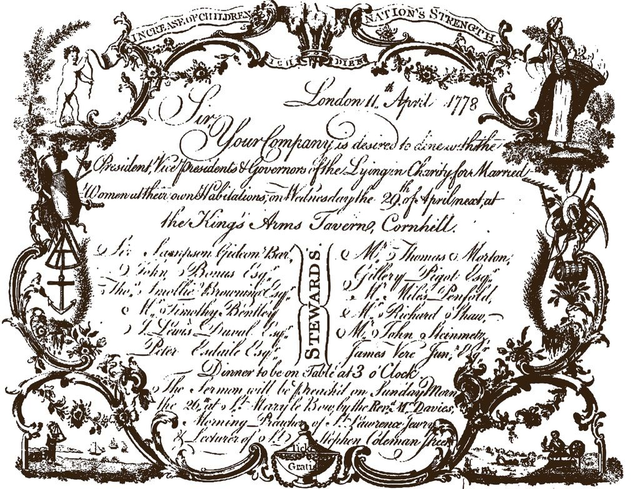 INCREASE OF CHILDREN
NATION'S STRENGTH
ICH DIEN
London 11.th April 1778
Sir
Your Company is desired to dine with the
President, Vice Presidents & Governors of the Lying in Charity for Married
Women at their own Habitations, on Wednesday the 29.th of April next, at
the King's Arms Tavern, Cornhill.
Sir Sampson Gideon Bar.t
John Bonus Esq.r
Tho.s Browning Esq.r
M.r Timothy Bentley
Lewis Duval Esq.r
Peter Esdaile Esq.r
STEWARDS.
M.r Thomas Morton,
Gillery Pigot Esq.r
M.r Miles Penfold,
M.r Richard Shaw,
M.r John Steinmetz
James Vere Jun.r Esq.r
Dinner to be on Table at 3 o'Clock
The Sermon will be preach'd on Sunday Morn
the 26.th at S.t Mary le Bow, by the Rev.d M.r Davies,
Morning Preacher of S.t Lawrence Jewry
& Lecturer of S.t Stephen Coleman Street
Ticket
Gratis